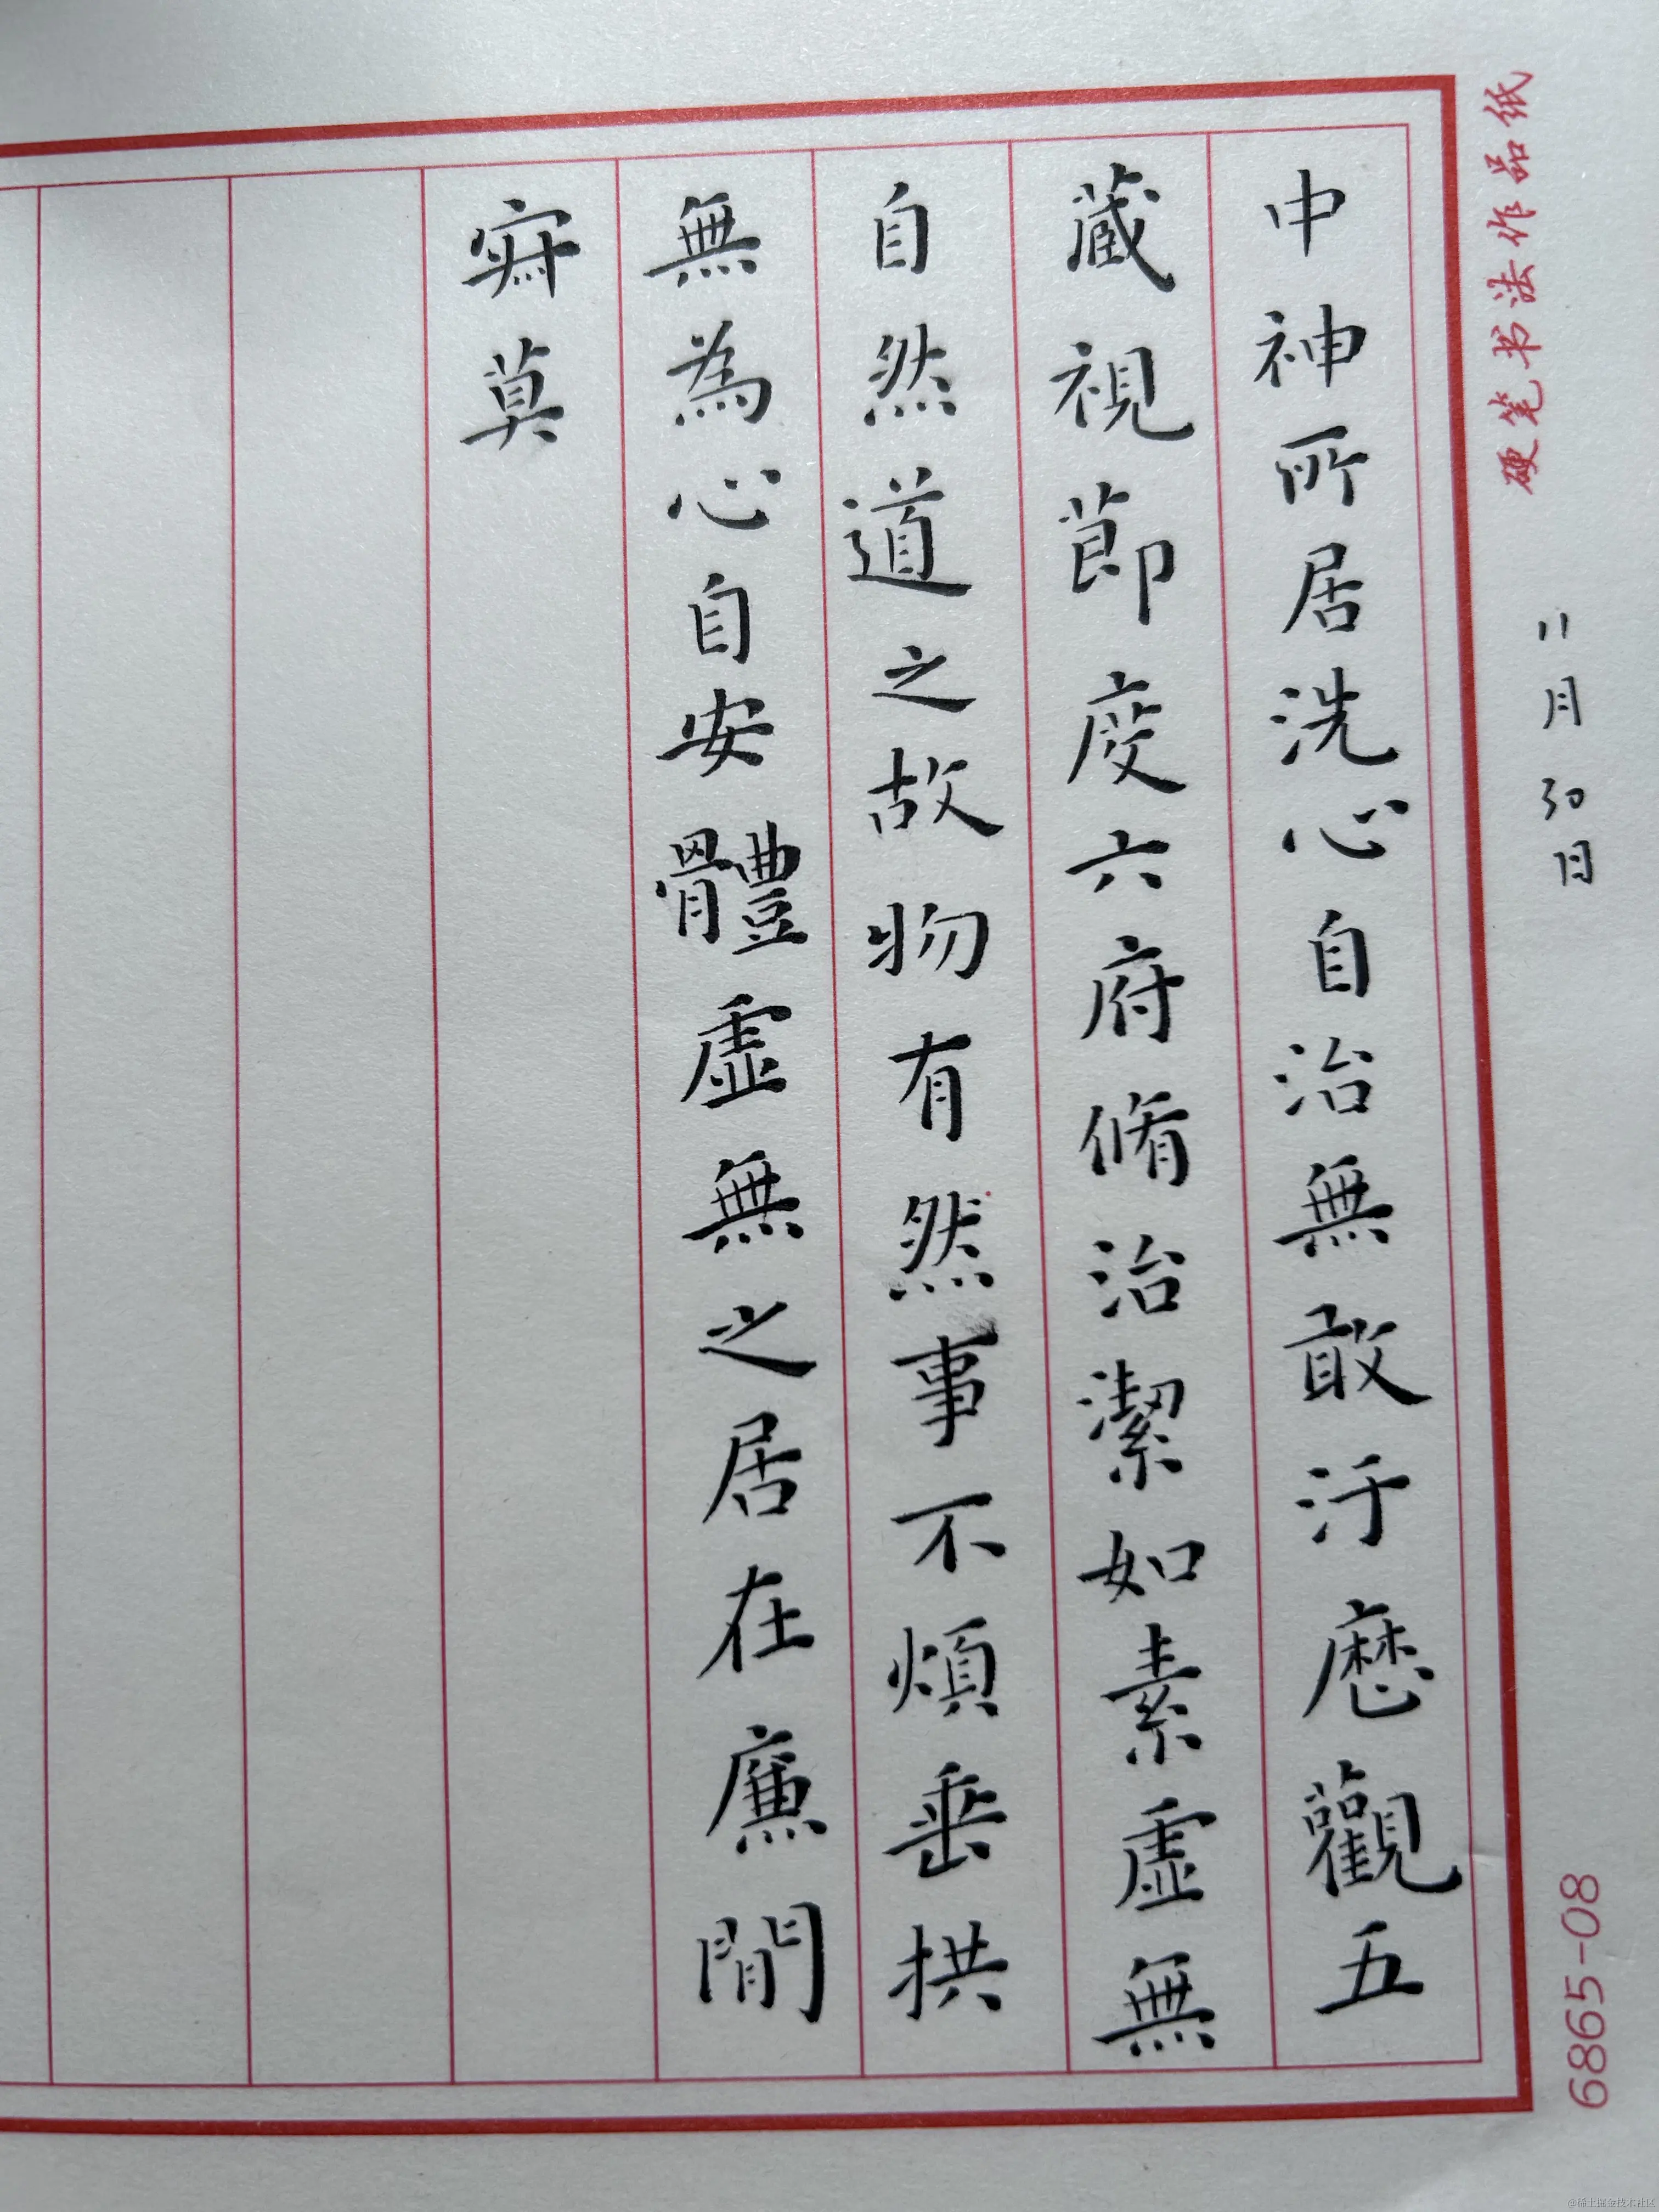 硬笔书法作品纸
11月30日
6865-08
中神所居洗心自治無敢汙歷觀五
藏視節度六府脩治潔如素虛無
自然道之故物有然事不煩垂拱
無為心自安體虛無之居在廉間
寂莫
@稀土掘金技术社区